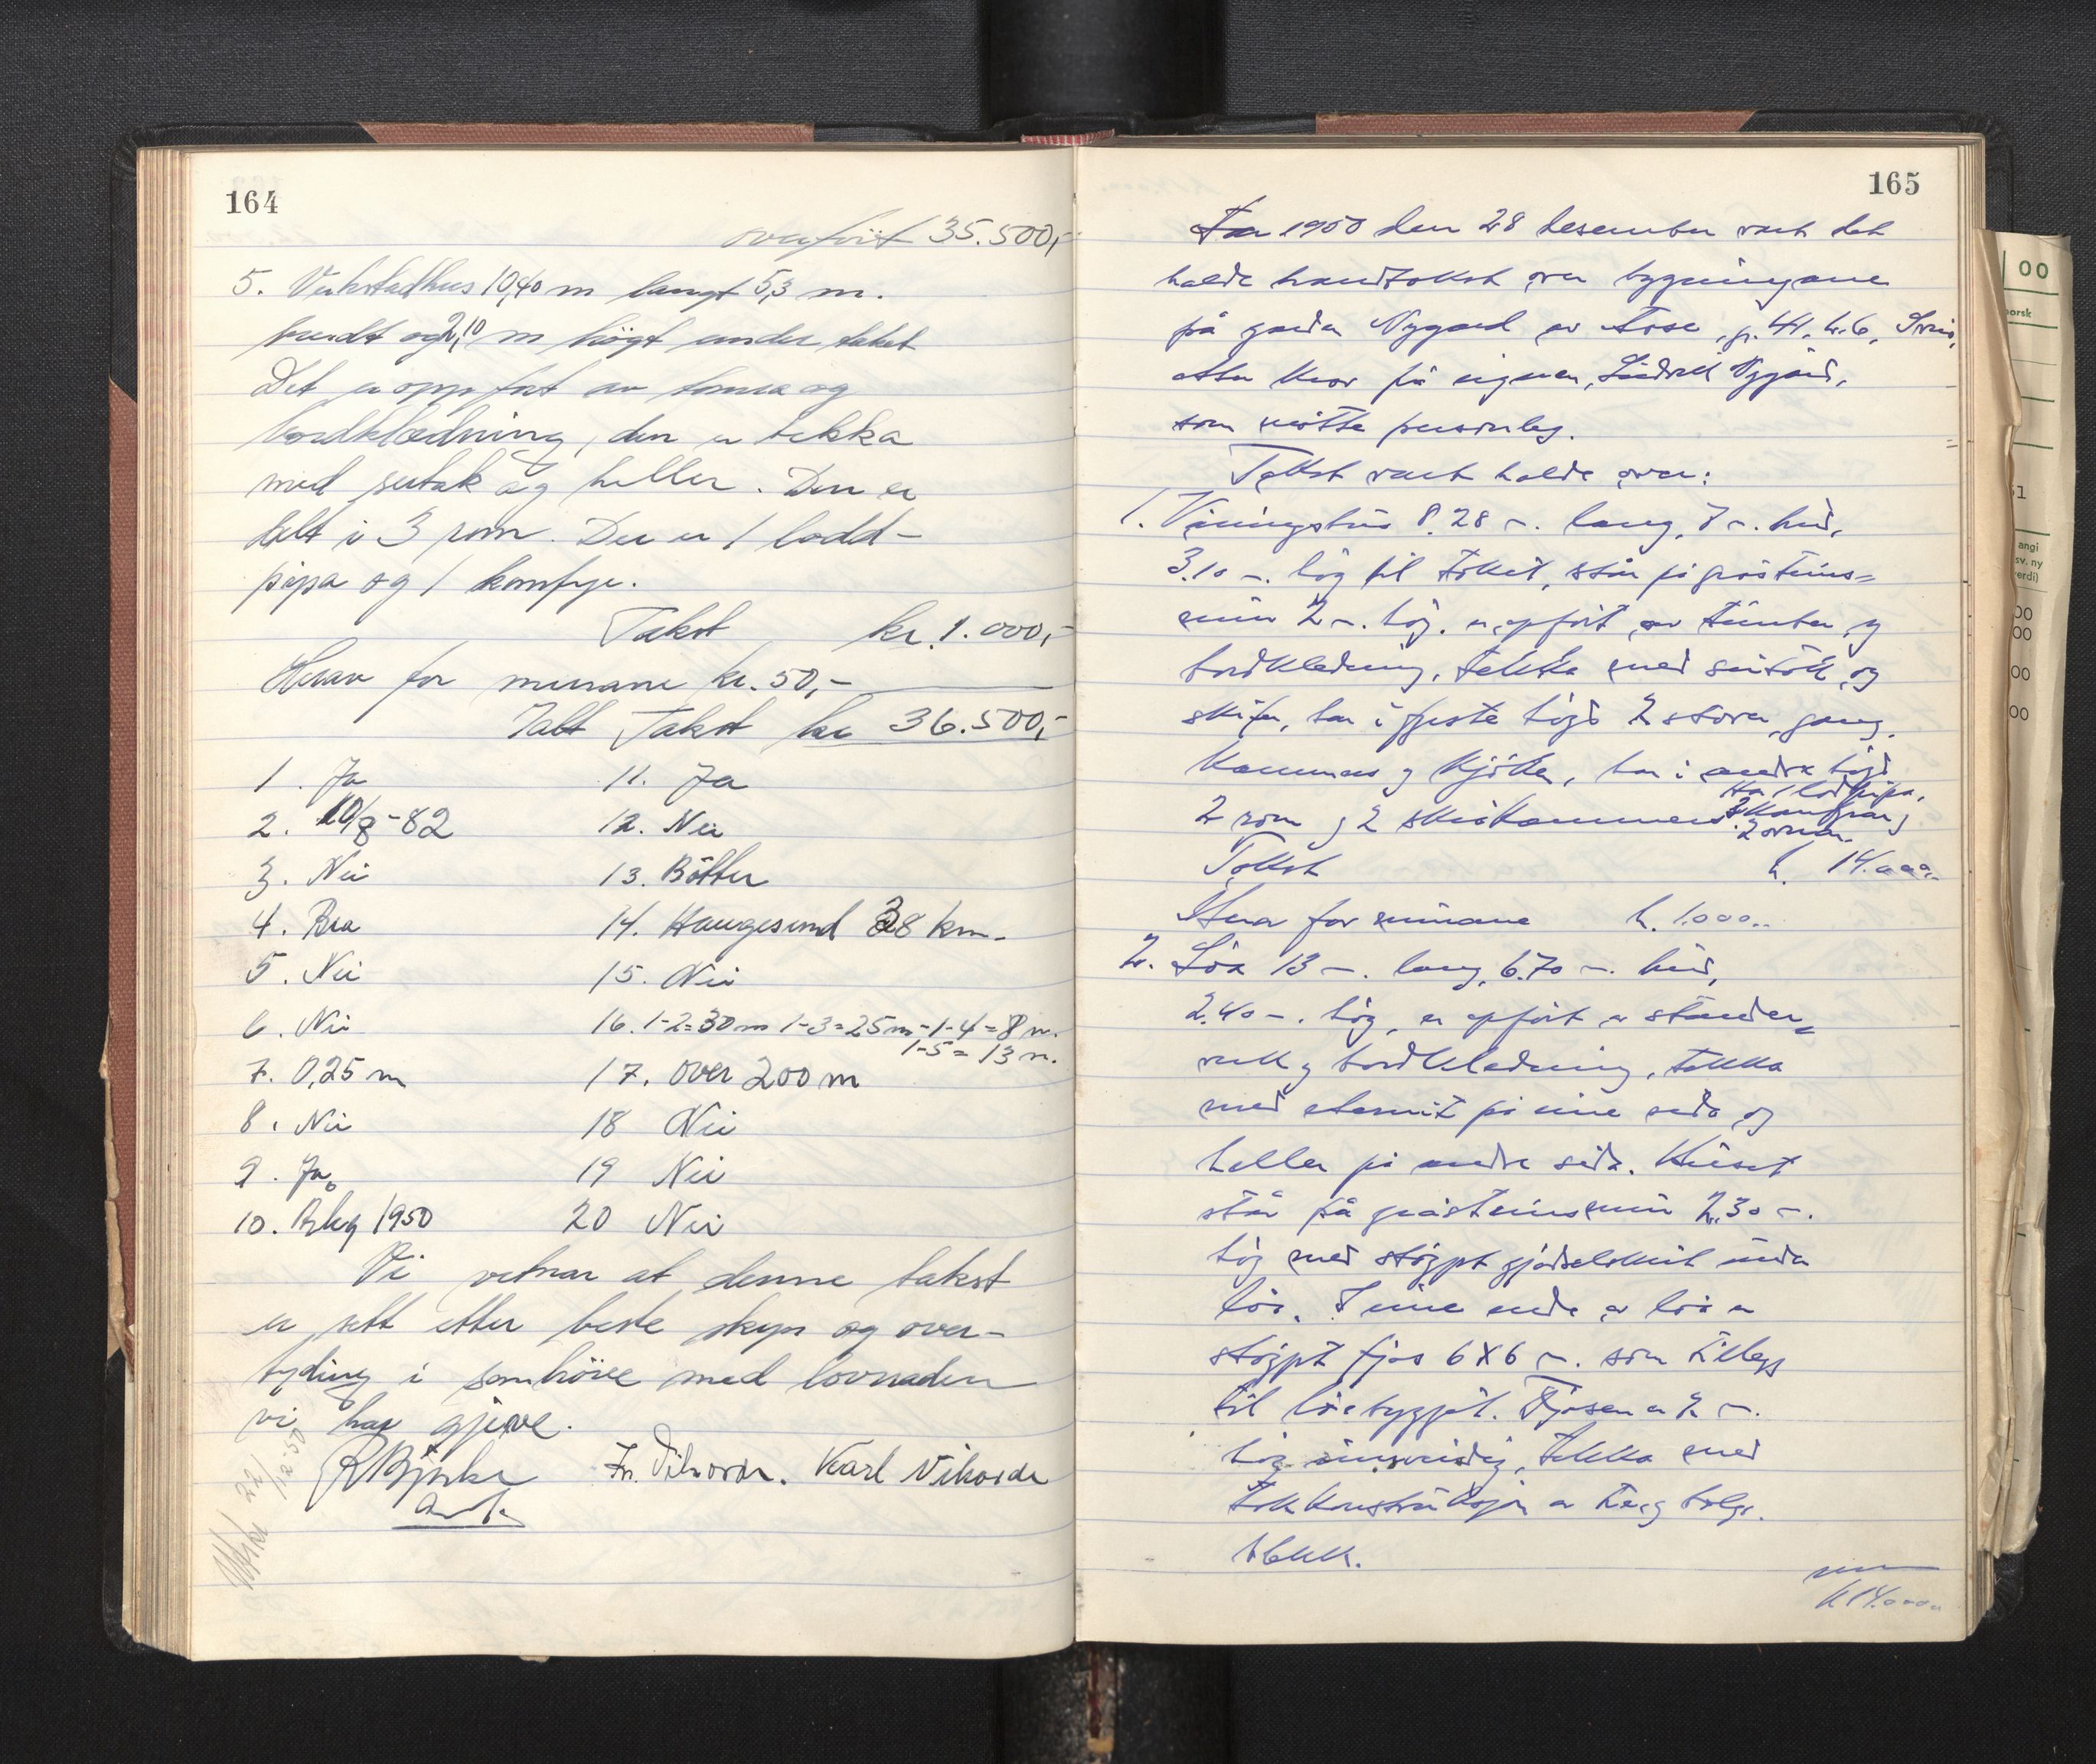 164
overført 35.500,-
5. Verkstadhus 10,40 m langt 5,3 m.
breidt og 2,10 m högt under taket
Det er oppført av tømra og
bordklædning, den er tekka
med sutak og heller. Den er
delt i 3 rom. Der er 1 lodd-
pipa og 1 komfyr.
Takst kr. 1.000,-
Herav for murane kr. 50,-
Ialt Takst kr 36.500,-
1. Ja
2. 10/8-82
3. Nei
4. Bra
5. Nei
6. Nei
7. 0,25 m
8. Nei
9. Ja
10. 1950
11. Ja
12. Nei
13. Bötter
14. Haugesund 38 km.
15. Nei
16. 1-2=30m 1-3=25m-1-4=8 m.
1-5=13 m.
17. over 200 m
18 Nei
19 Nei
20 Nei
Vi vitnar at denne takst
er sett etter beste skyn og over-
tyding i samhöve med lovnaden
vi har gjeve.
Karl Vihovde
165
Aar 1950 den 28 desember vart det
halde branntakst over bygningane
på garden Nygard av gr. 41, br. 6,
etter krav frå eigaren, Nygård,
som møtte personleg.
Takst vart halde over:
1. Våningshus 8.28 m. lang, 7 m. brei,
3.10 m. høg til taket, står på gråsteins=
mur 2 m. høg. er oppført av tømber og
bordkledning, tekka med sutak og
skifer, har i fyrste høgd 2 stover, gang,
kammers og kjøken, har i andre høgd
2 rom og 2 skråkammers. Har 1 lodpipa,
2 komfyrar og
2 omnar.
Takst kr. 14.000.-
Herav for murane kr. 1.000.-
2. Löa 13 m. lang, 6.70 m. brei,
2.40 m. høg, er oppført av stender=
verk og bordkledning, tekka
med eternit på eine sida og
heller på andre sida. Huset
står på gråsteinsmur 2.30 m.
høg med støypt gjødselskut under
löa. I eine ende av löa er
støypt fjøs 6x6 m. som tillegg
til löebygget. Fjøsen er 2 m.
høg innvendig, tekka med
takkonstruksjon av tre og bølge-
blekk.
kr 14.000.-